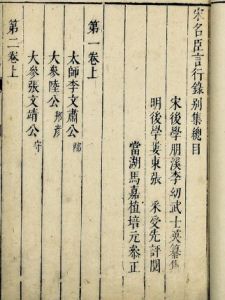 宋名臣言行錄別集總目
宋後學朋溪李幼武士英纂集
明後學婁東張采受先評閱
當湖馬嘉植培元參正
第一卷上
太師李文肅公邴
大參陸公
大參張文靖公守
第二卷上